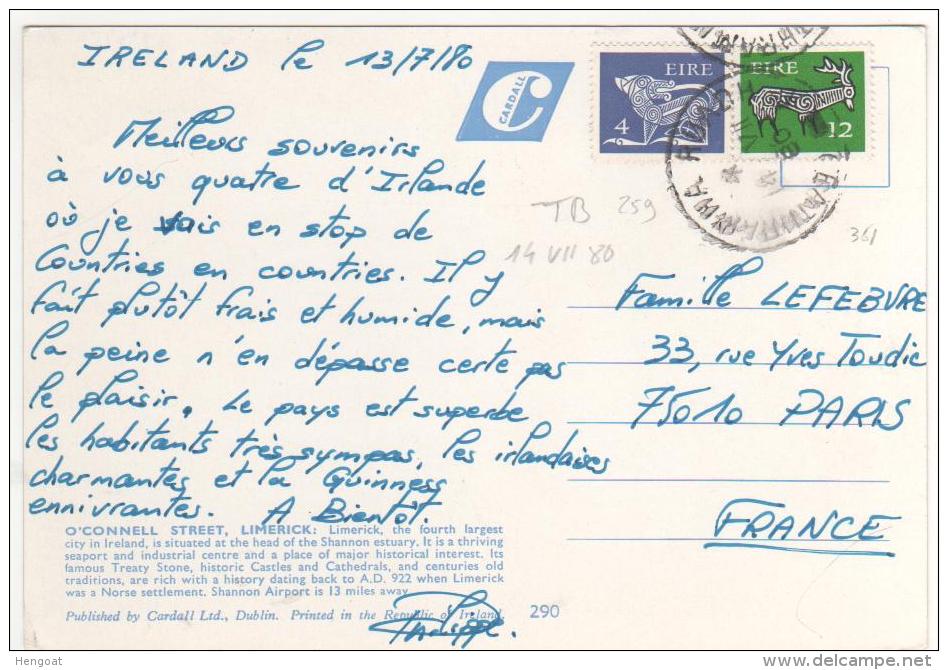 IRELAND le 13/7/80
Meilleurs souvenirs
à vous quatre d'Irlande
où je vais en stop de
Countries en countries. Il y
fait plutôt frais et humide, mais
la peine n'en dépasse certe pas
le plaisir. Le pays est superbe
les habitants très sympas, les irlandaises
charmantes et la Guinness
ennivrantes. A Bientôt.
Philippe.
CARDALL
EIRE
4
EIRE
12
TB 259
14 VII 80
361
Famille LEFEBVRE
33, rue Yves Toudic
75010 PARIS
FRANCE
O'CONNELL STREET, LIMERICK: Limerick, the fourth largest
city in Ireland, is situated at the head of the Shannon estuary. It is a thriving
seaport and industrial centre and a place of major historical interest. Its
famous Treaty Stone, historic Castles and Cathedrals, and centuries old
traditions, are rich with a history dating back to A.D. 922 when Limerick
was a Norse settlement. Shannon Airport is 13 miles away.
Published by Cardall Ltd., Dublin. Printed in the Republic of Ireland.
290
Hengoat
www.delcampe.net